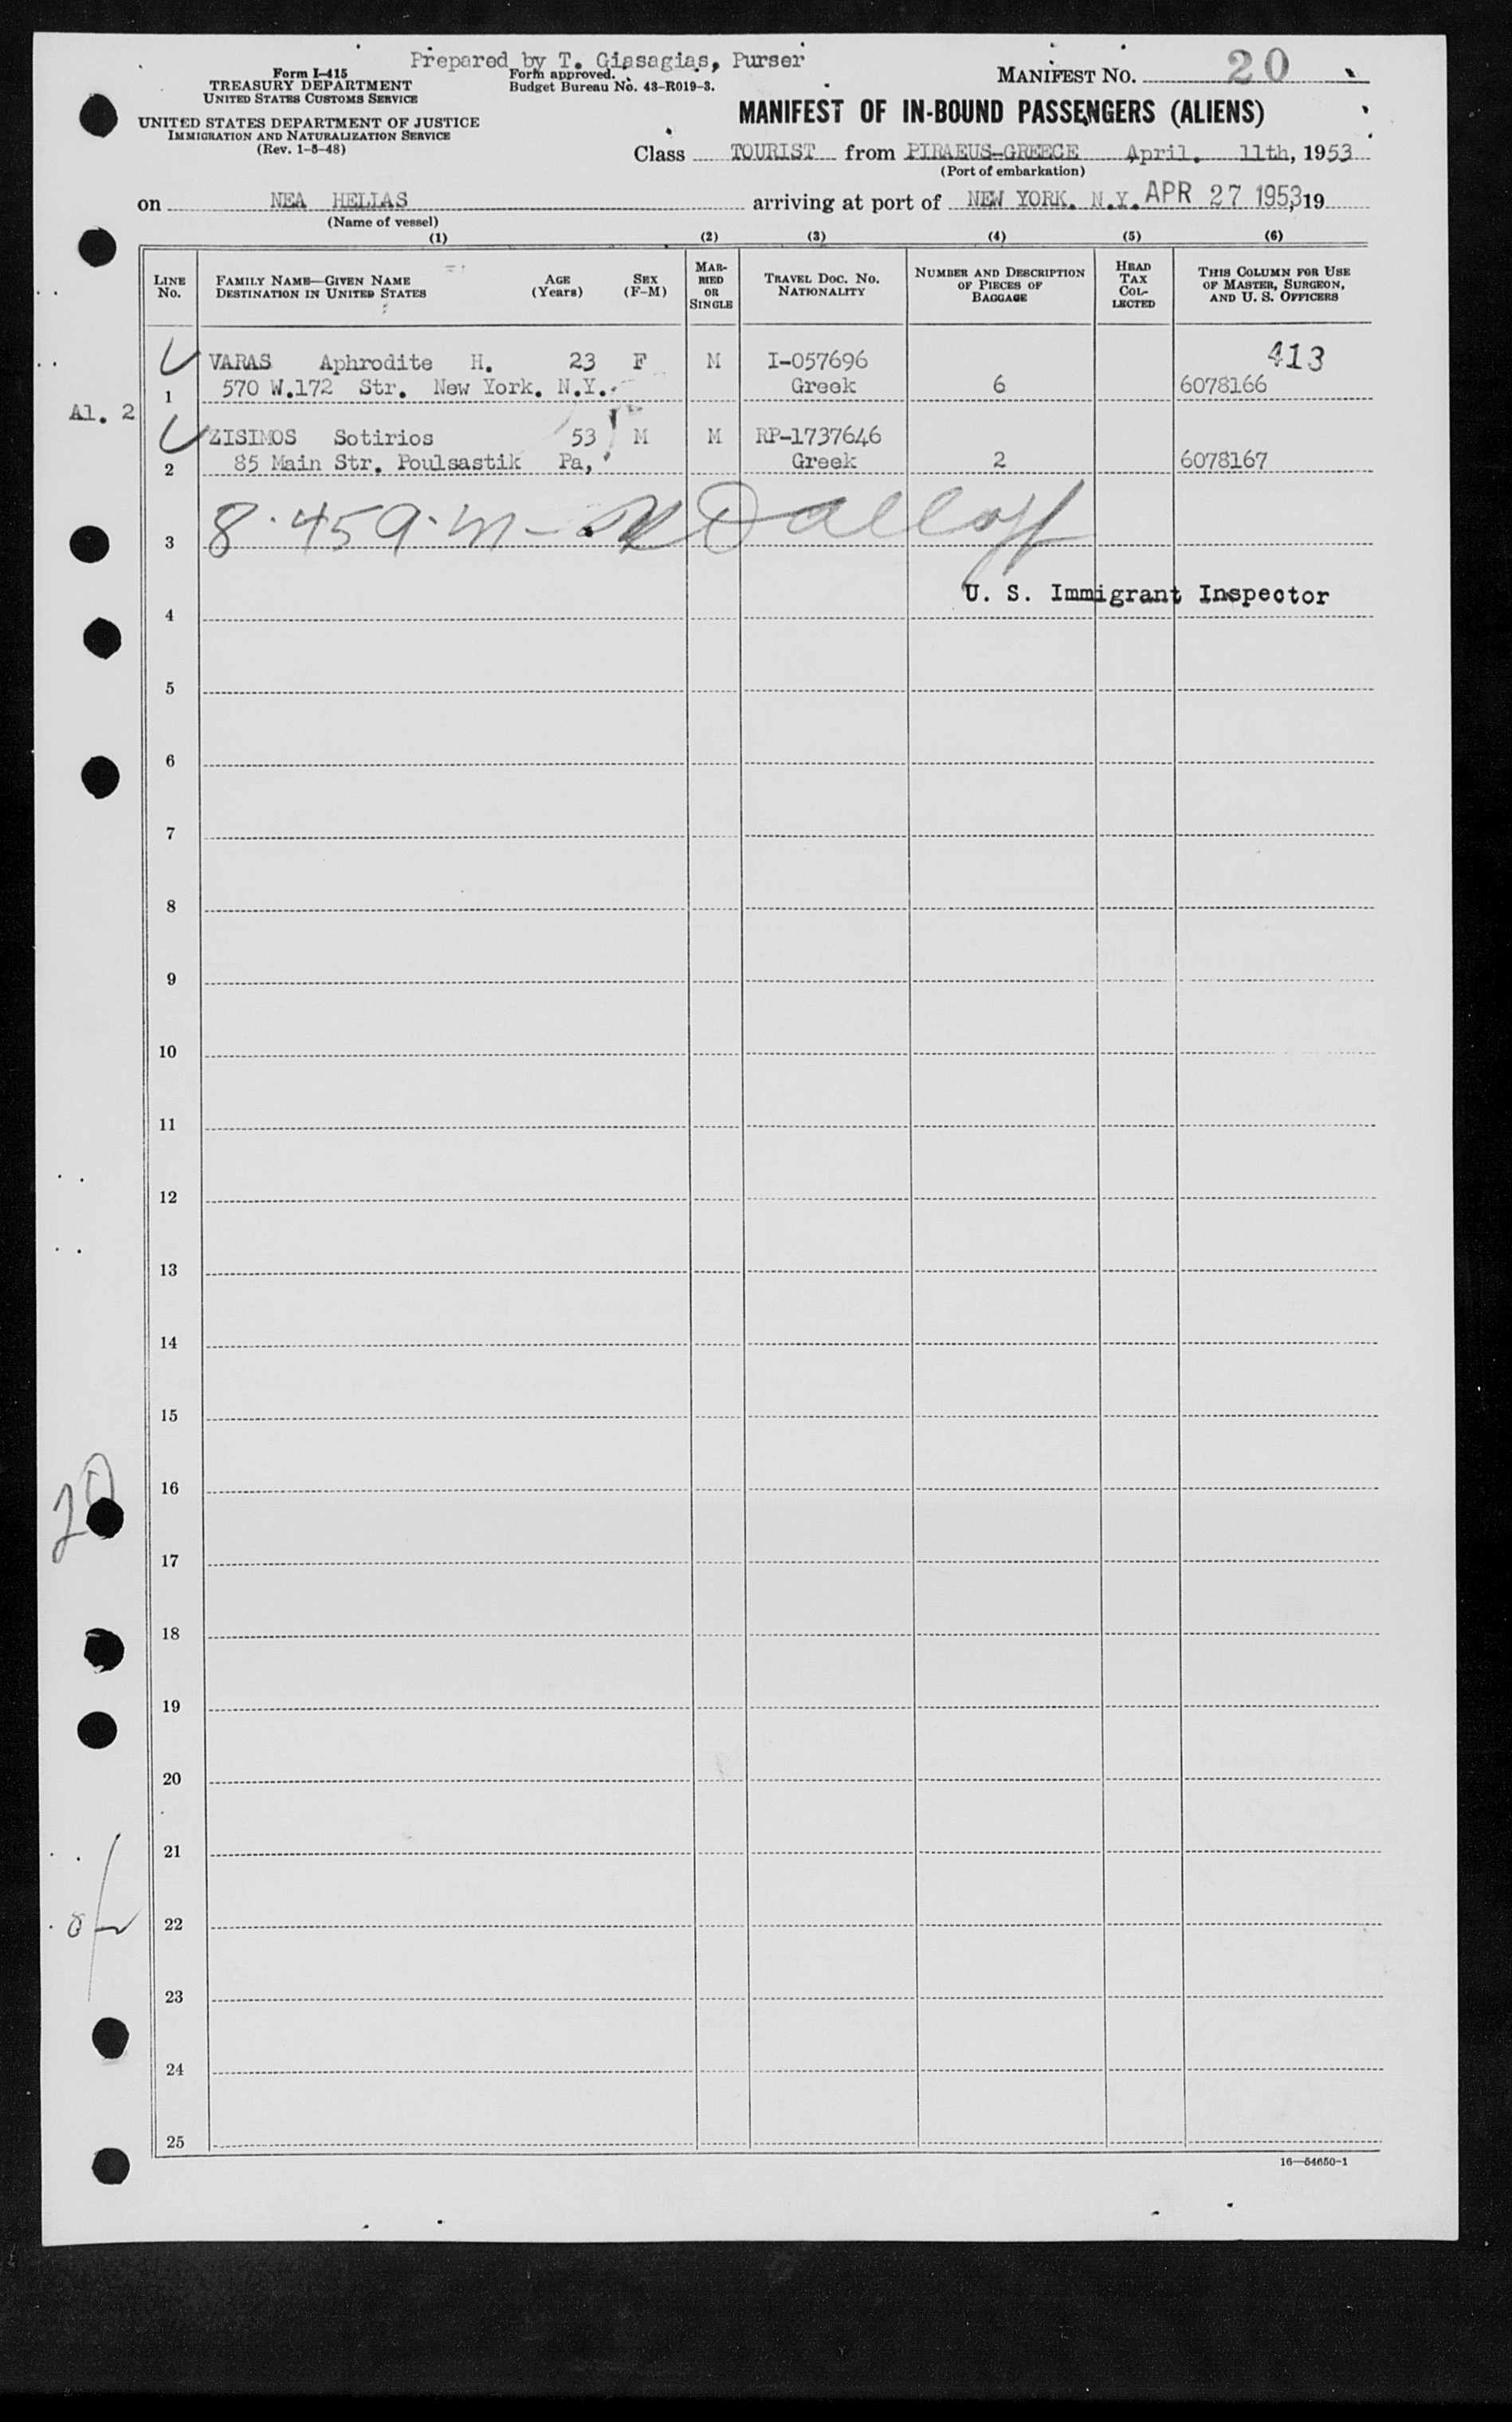 Prepared by T. Giasagias, Purser
Form I-415
TREASURY DEPARTMENT
UNITED STATES CUSTOMS SERVICE
Form approved.
Budget Bureau No. 43-R019-3.
MANIFEST No. 20
UNITED STATES DEPARTMENT OF JUSTICE
IMMIGRATION AND NATURALIZATION SERVICE
(Rev. 1-5-48)
MANIFEST OF IN-BOUND PASSENGERS (ALIENS)
Class TOURIST from PIRAEUS-GREECE April. 11th, 1953
(Port of embarkation)
on NEA HELLAS arriving at port of NEW YORK. N.Y. APR 27 1953, 19
(Name of vessel)
(1) (2) (3) (4) (5) (6)
LINE No. FAMILY NAME—GIVEN NAME DESTINATION IN UNITED STATES AGE (Years) SEX (F-M) MARRIED OR SINGLE TRAVEL DOC. NO. NATIONALITY NUMBER AND DESCRIPTION OF PIECES OF BAGGAGE HEAD TAX COLLECTED THIS COLUMN FOR USE OF MASTER, SURGEON, AND U. S. OFFICERS
VARAS Aphrodite H. 23 F M I-057696 413
1 570 W.172 Str. New York. N.Y. Greek 6 6078166
Al. 2
ZISIMOS Sotirios 53 M M RP-1737646
2 85 Main Str. Poulsastik Pa, Greek 2 6078167
3 8.459.m-
U. S. Immigrant Inspector
4
5
6
7
8
9
10
11
12
13
14
15
16
20
17
18
19
20
21
22
23
24
25
16—54650-1